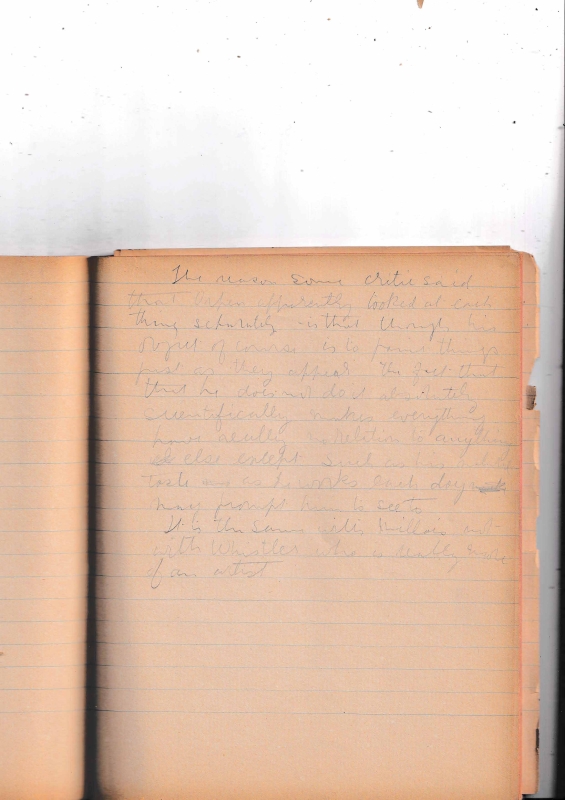 The reason some critic said
that apparently looked at each
thing separately is that though his
object of course is to paint things
just as they appear the fact that
that he does not do it absolutely
scientifically makes everything
have really no relation to anything
else except such as his
taste as he works each day
may prompt him to
It is the same with
with Whistler who is really more
of an artist